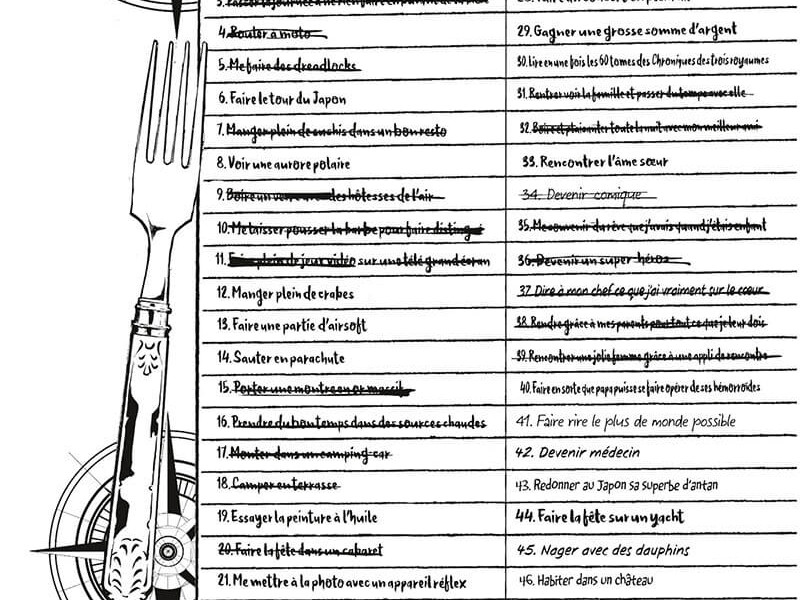 4. Rouler à moto
5. Me faire des dreadlocks
6. Faire le tour du Japon
7. Manger plein de sushis dans un bon resto
8. Voir une aurore polaire
9. Boire un verre avec des hôtesses de l'air
10. Me laisser pousser la barbe pour faire distingué
11. Faire plein de jeux vidéo sur une télé grand écran
12. Manger plein de crabes
13. Faire une partie d'airsoft
14. Sauter en parachute
15. Porter une montre en or massif
16. Prendre du bon temps dans des sources chaudes
17. Monter dans un camping-car
18. Camper en terrasse
19. Essayer la peinture à l'huile
20. Faire la fête dans un cabaret
21. Me mettre à la photo avec un appareil réflex
29. Gagner une grosse somme d'argent
30. Lire en une fois les 60 tomes des Chroniques des trois royaumes
31. Rentrer voir la famille et passer du temps avec elle
32. Boire et plaisanter toute la nuit avec mon meilleur ami
33. Rencontrer l'âme sœur
34. Devenir comique
35. Me souvenir du rêve que j'avais quand j'étais enfant
36. Devenir un super héros
37. Dire à mon chef ce que j'ai vraiment sur le cœur
38. Rendre grâce à mes parents pour tout ce que je leur dois
39. Rencontrer une jolie femme grâce à une appli de rencontre
40. Faire en sorte que papa puisse se faire opérer de ses hémorroïdes
41. Faire rire le plus de monde possible
42. Devenir médecin
43. Redonner au Japon sa superbe d'antan
44. Faire la fête sur un yacht
45. Nager avec des dauphins
46. Habiter dans un château